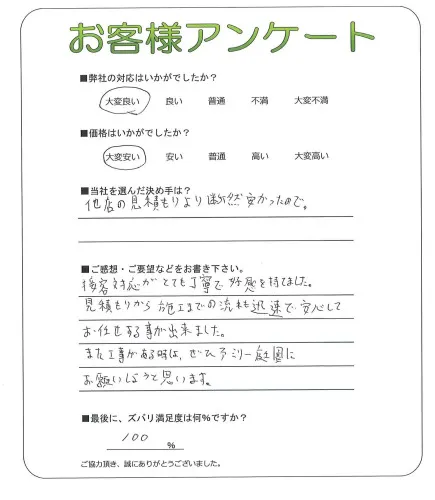 お客様アンケート
■弊社の対応はいかがでしたか？
大変良い 良い 普通 不満 大変不満
■価格はいかがでしたか？
大変安い 安い 普通 高い 大変高い
■当社を選んだ決め手は？
他店の見積もりより断然安かったので。
■ご感想・ご要望などをお書き下さい。
接客対応がとても丁寧で好感を持てました。
見積もりから施工までの流れも迅速で安心して
お任せする事が出来ました。
また工事がある時は、ぜひファミリー庭園に
お願いしようと思います。
■最後に、ズバリ満足度は何％ですか？
100 ％
ご協力頂き、誠にありがとうございました。